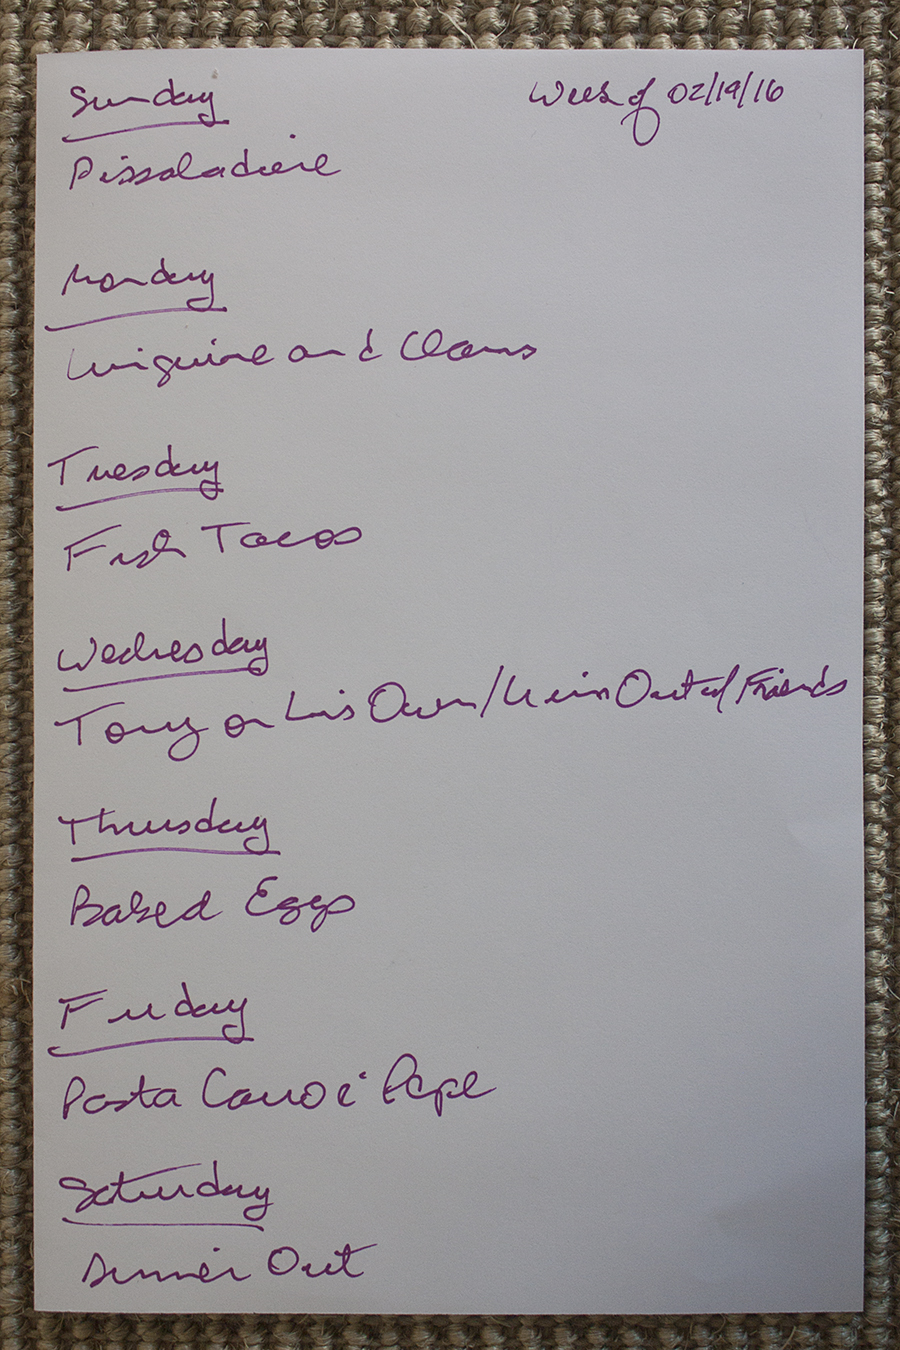 Sunday Week of 02/19/16
Pissaladiere
Monday
Linguine and Clams
Tuesday
Fish Tacos
Wednesday
Tony on his Own/ Out w/ Friends
Thursday
Baked Eggs
Friday
Pasta Pepe
Saturday
Dinner Out